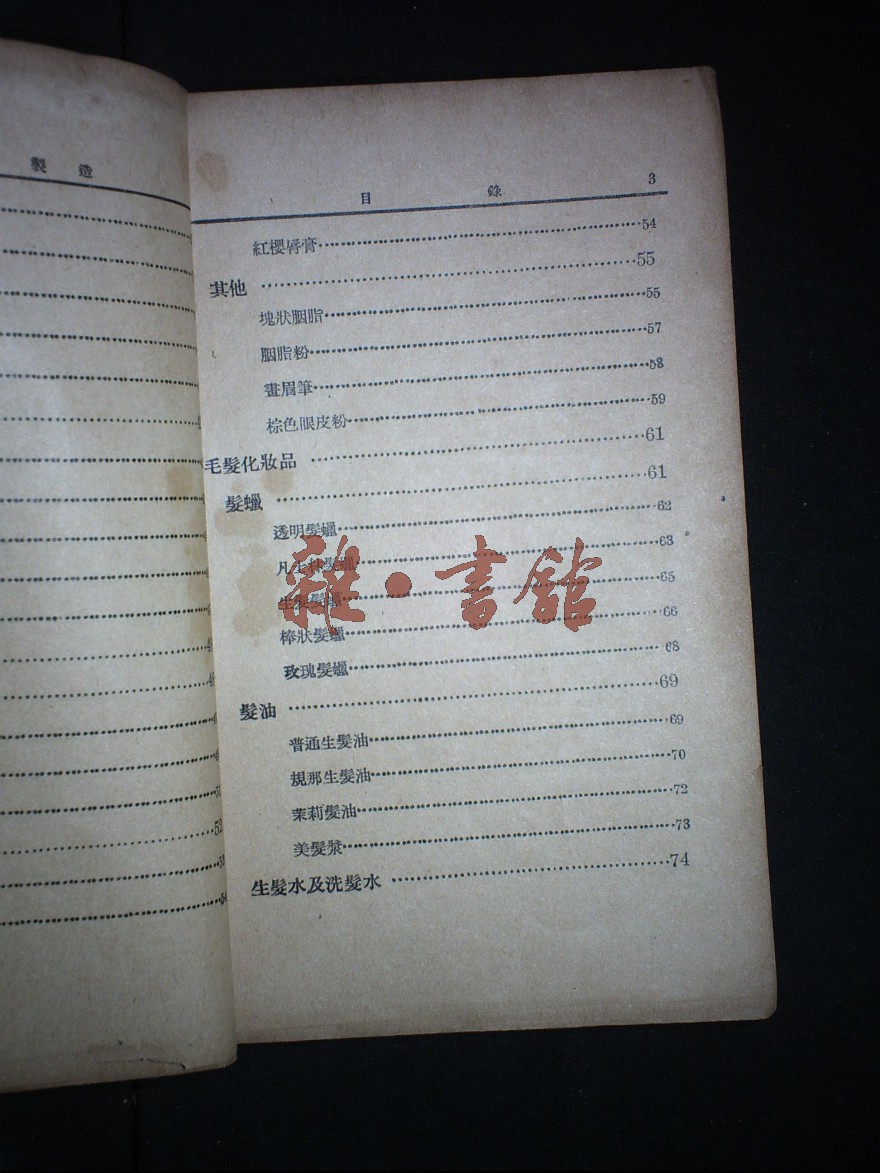 製造
目錄 3
紅櫻唇膏 54
其他 55
塊狀胭脂 55
胭脂粉 57
畫眉筆 58
棕色眼皮粉 59
毛髮化妝品 61
髮蠟 61
透明髮蠟 62
凡士林髮蠟 63
生髮髮蠟 65
棒狀髮蠟 66
玫瑰髮蠟 68
髮油 69
普通生髮油 69
規那生髮油 70
茉莉髮油 72
美髮漿 73
生髮水及洗髮水 74
雜·書館
52